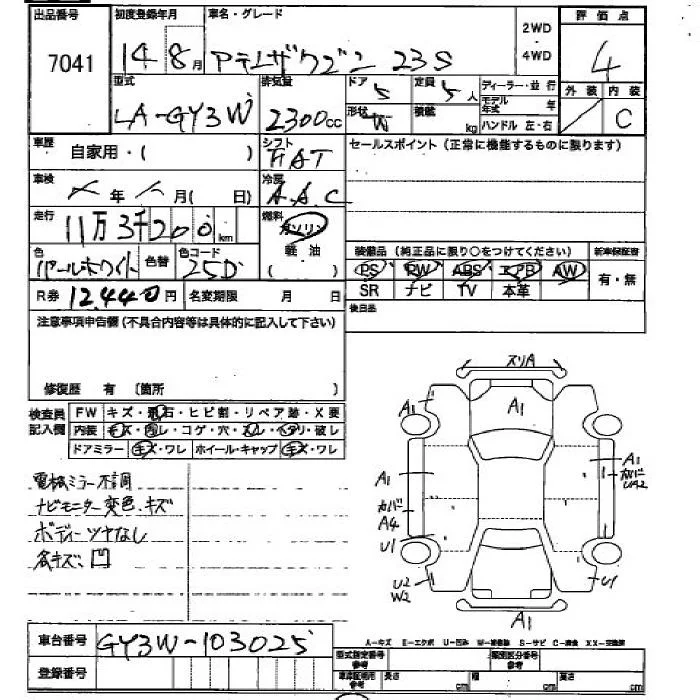 出品番号 初度登録年月 車名・グレード 評価点
7041 14年8月 アテンザワゴン 23S 2WD・4WD 4
型式 排気量 ドア 定員 ディーラー・並行 外装 内装
LA-GY3W 2300cc 5 5人 モデル年式 年 C
形状 W 積載 kg ハンドル 左・右
車歴 自家用・( ) シフト FAT セールスポイント(正常に機能するものに限ります)
車検 年 月(日) 冷房 A.A.C
走行 11万3千200km 燃料 ガソリン 軽油 ( )
色 パールホワイト 色替 色コード 25D 装備品(純正品に限り○をつけてください) 新車保証書
PS PW ABS エアB AW 有・無
R券 12.440円 名変期限 月 日 SR ナビ TV 本革
注意事項申告欄(不具合内容等は具体的に記入して下さい) 後日品
修復歴 有 〔箇所 〕
検査員記入欄 FW キズ・飛石・ヒビ割・リペア跡・X要
内装 キズ・汚レ・コゲ・穴・スレ・ヘタリ・破レ
ドアミラー キズ・ワレ ホイール・キャップ キズ・ワレ
電格ミラー不調
ナビモニター変色.キズ
ボディーツヤなし
各キズ.凹
スリA
A1 A1
A1 A1
カバー カバー
A4 UA2
U1
U2 U1
W2
A1
車台番号 GY3W-103025
登録番号
A-キズ E-エクボ U-凹み W-補修跡 S-サビ C-腐食 XX-交換済
型式指定番号 参考 類別区分番号 参考
車庫証明用 参考 長さ cm 幅 cm 高さ cm